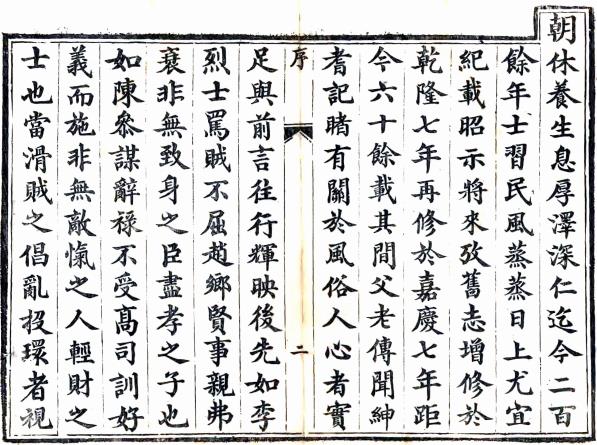 朝休養生息厚澤深仁迄今二百
餘年士習民風蒸蒸日上尤宜
紀載昭示將來攷舊志增修於
乾隆七年再修於嘉慶七年距
今六十餘載其間父老傳聞紳
耆記睹有關於風俗人心者實
序
二
足與前言往行輝映後先如李
烈士罵賊不屈趙鄉賢事親弗
衰非無致身之臣盡孝之子也
如陳參謀辭祿不受高司訓好
義而施非無敵愾之人輕財之
士也當滑賊之倡亂投環者視